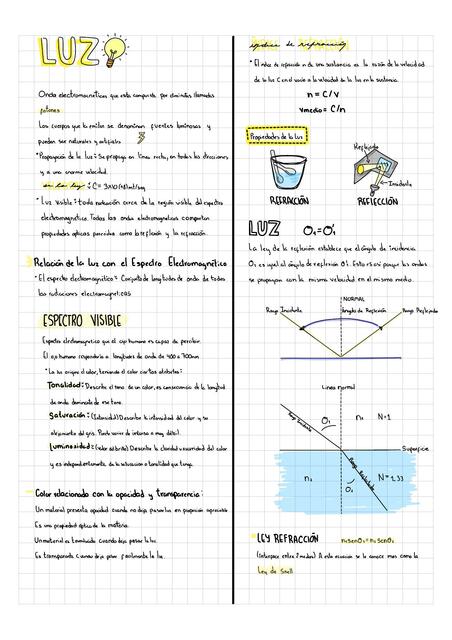 LUZ
Onda electromagnética que esta compuesta por diminutos llamados
fotones
Los cuerpos que la emiten se denominan fuentes luminosas y
pueden ser naturales y artificiales
*Propagación de la luz: Se propaga en línea recta, en todas las direcciones
y a una enorme velocidad.
* Luz visible: toda radiación cerca de la región visible del espectro
electromagnético. Todas las ondas electromagnéticas comparten
propiedades ópticas parecidas como la reflexión y la refracción.
Relación de la luz con el Espectro Electromagnético
* El espectro electromagnético: Conjunto de longitudes de onda de todas
las radiaciones electromagnéticas
ESPECTRO VISIBLE
Espectro electromagnético que el ojo humano es capaz de percibir.
El ojo humano responderá a longitudes de onda de 400 a 700nm
* La luz origina el color, teniendo el color ciertos atributos:
Tonalidad: Describe el tono de un color, es consecuencia de la longitud
de onda dominante de ese tono.
Saturación: (Intensidad) Describe la intensidad del color y su
alejamiento del gris. Puede variar de intenso a muy débil.
Luminosidad: (valor del brillo) Describe la claridad u oscuridad del color
y es independiente de la saturación o tonalidad que tenga.
Color relacionado con la opacidad y transparencia:
Un material presenta opacidad cuando no deja pasar luz en proporción apreciable
Es una propiedad óptica de la materia.
Un material es translúcido cuando deja pasar la luz.
Es transparente cuando deja pasar fácilmente la luz.
índice de refracción
* El índice de refracción n de una sustancia es la razón de la velocidad
de la luz C en el vacío a la velocidad de la luz en la sustancia.
n = C/V
Vmedio = C/n
Propiedades de la Luz
Reflejado
Incidente
REFRACCIÓN
REFLECCIÓN
LUZ O₁=O'₁
La ley de la reflexión establece que el ángulo de incidencia
O₁ es igual al ángulo de reflexión O'₁. Esto es así porque las ondas
se propagan con la misma velocidad en el mismo medio.
NORMAL
Rayo Incidente
Ángulos de Reflexión
Rayo Reflejado
Linea normal
Rayo Incidente
O₁
n₁
N=1
Superficie
Rayo Refractado
n₂
O₂
N=1,33
LEY REFRACCIÓN n₁senO₁=n₂senO₂
(Interfase entre 2 medios) A esta ecuación se le conoce mas como la
Ley de Snell